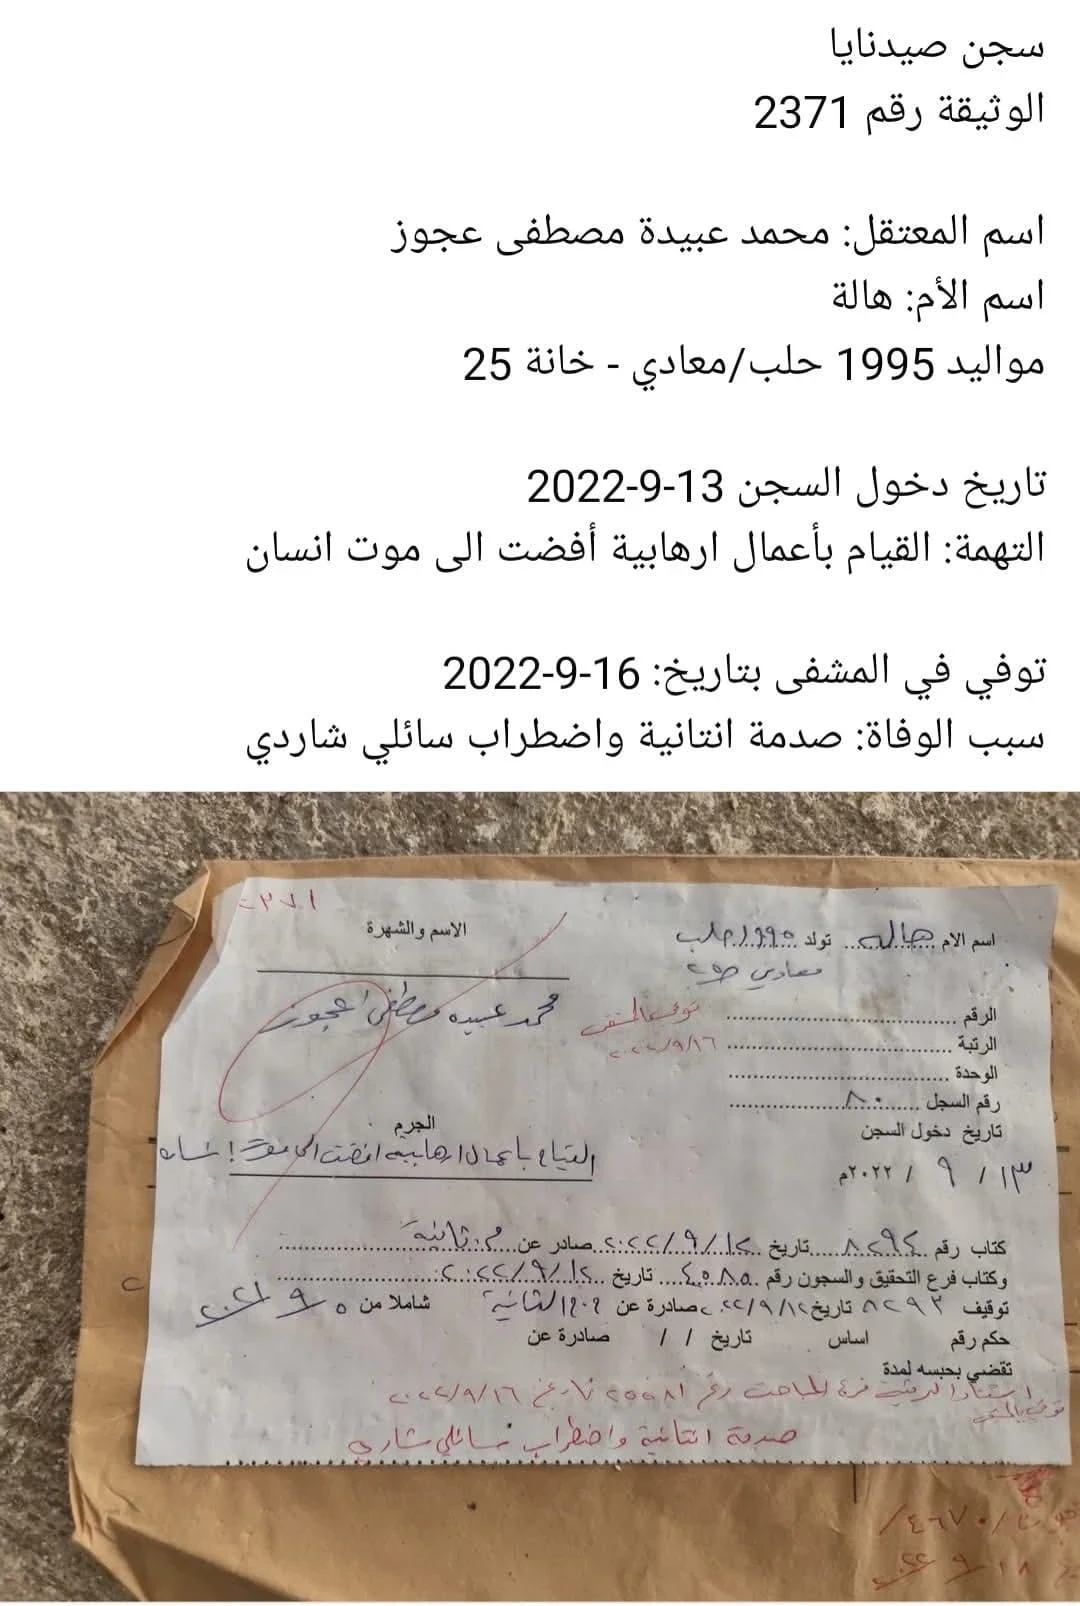 سجن صيدنايا
الوثيقة رقم 2371
اسم المعتقل: محمد عبيدة مصطفى عجوز
اسم الأم: هالة
مواليد 1995 حلب/معادي - خانة 25
تاريخ دخول السجن 13-9-2022
التهمة: القيام بأعمال ارهابية أفضت الى موت انسان
توفي في المشفى بتاريخ: 16-9-2022
سبب الوفاة: صدمة انتانية واضطراب سائلي شاردي
اسم الام هاله تولد ١٩٩٥ حلب
معادي
الاسم والشهرة
محمد عبيده مصطفى عجوز
الرقم
توفي بالمشفى
الرتبة
٢٠٢٢/٩/١٦
الوحدة
رقم السجل ٨٠
تاريخ دخول السجن
١٣ / ٩ / ٢٠٢٢م
الجرم
القيام باعمال ارهابية افضت الى موت انسان
كتاب رقم ٨٢٩٤ تاريخ ٢٠٢٢/٩/١٢ صادر عن م. ثانية
وكتاب فرع التحقيق والسجون رقم تاريخ ٢٠٢٢/٩/١٢
توقيف ٨٢٩٣ تاريخ ٢٠٢٢/٩/١٢ صادرة عن الثانية شاملا من ٥
حكم رقم اساس تاريخ / / صادرة عن
تقضي بحبسه لمدة
استنادا لبرقية فرع المباحث رقم تاريخ ٢٠٢٢/٩/١٦
توفي بالمشفى
صدمة انتانية واضطراب سائلي شاردي